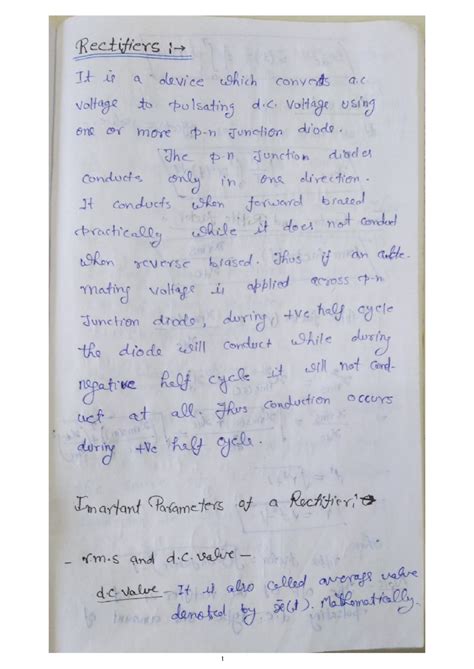 Rectifiers :→
It is a device which converts a.c.
voltage to pulsating d.c. voltage using
one or more p-n Junction diode.
The p-n Junction diodes
conducts only in one direction.
It conducts when forward biased
practically while it does not conduct
when reverse biased. Thus if an alte-
rnating voltage is applied across p-n
Junction diode, during +ve half cycle
the diode will conduct while during
negative half cycle it will not cond-
uct at all. Thus conduction occurs
during +ve half cycle.
Imartant Parameters of a Rectifier:→
- r.m.s and d.c. value -
d.c. value - It is also called average value
denoted by x̄(t). Mathematically.
1